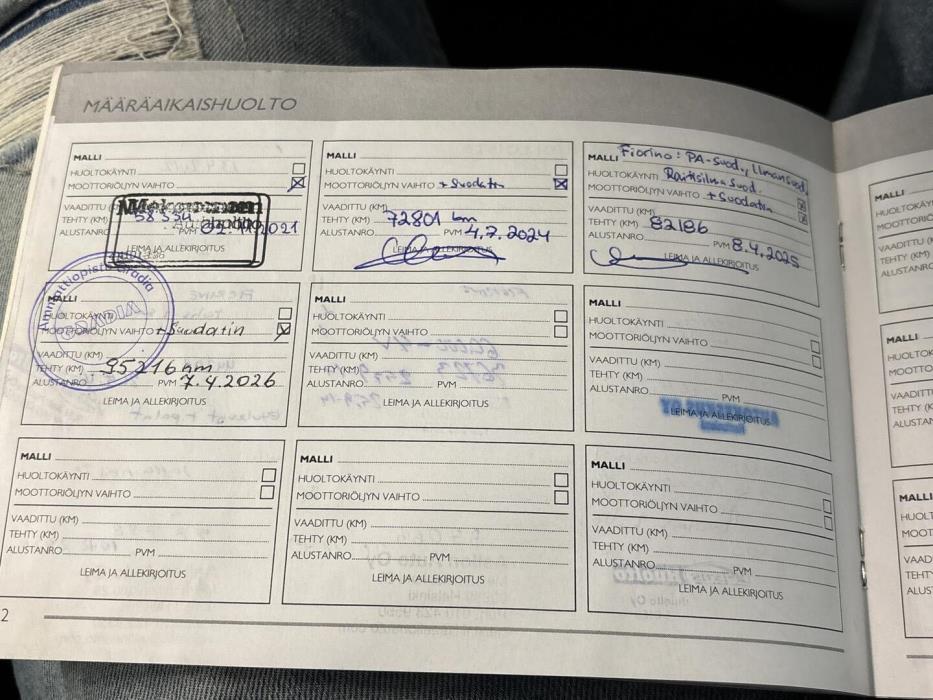 MÄÄRÄAIKAISHUOLTO
MALLI
HUOLTOKÄYNTI
MOOTTORIÖLJYN VAIHTO
VAADITTU (KM)
TEHTY (KM) 58 554
ALUSTANRO PVM 02.11.2021
LEIMA JA ALLEKIRJOITUS
MALLI
HUOLTOKÄYNTI
MOOTTORIÖLJYN VAIHTO + Suodatin
VAADITTU (KM)
TEHTY (KM) 72801 km
ALUSTANRO PVM 4.7.2024
LEIMA JA ALLEKIRJOITUS
MALLI Fiorino: PA-suod., Ilmansuod,
HUOLTOKÄYNTI Raitisilmasuod.
MOOTTORIÖLJYN VAIHTO + Suodatin
VAADITTU (KM)
TEHTY (KM) 82186
ALUSTANRO PVM 8.4.2025
LEIMA JA ALLEKIRJOITUS
Ammattiopisto Gradia
GRADIA
MALLI
HUOLTOKÄYNTI
MOOTTORIÖLJYN VAIHTO + Suodatin
VAADITTU (KM)
TEHTY (KM) 95216 km
ALUSTANRO PVM 7.4.2026
LEIMA JA ALLEKIRJOITUS
MALLI
HUOLTOKÄYNTI
MOOTTORIÖLJYN VAIHTO
VAADITTU (KM)
TEHTY (KM)
ALUSTANRO PVM
LEIMA JA ALLEKIRJOITUS
MALLI
HUOLTOKÄYNTI
MOOTTORIÖLJYN VAIHTO
VAADITTU (KM)
TEHTY (KM)
ALUSTANRO PVM
LEIMA JA ALLEKIRJOITUS
MALLI
HUOLTOKÄYNTI
MOOTTORIÖLJYN VAIHTO
VAADITTU (KM)
TEHTY (KM)
ALUSTANRO PVM
LEIMA JA ALLEKIRJOITUS
MALLI
HUOLTOKÄYNTI
MOOTTORIÖLJYN VAIHTO
VAADITTU (KM)
TEHTY (KM)
ALUSTANRO PVM
LEIMA JA ALLEKIRJOITUS
MALLI
HUOLTOKÄYNTI
MOOTTORIÖLJYN VAIHTO
VAADITTU (KM)
TEHTY (KM)
ALUSTANRO PVM
LEIMA JA ALLEKIRJOITUS
2
MALLI
VAADITTU
TEHTY (KM)
ALUSTANRO
MALLI
MALLI